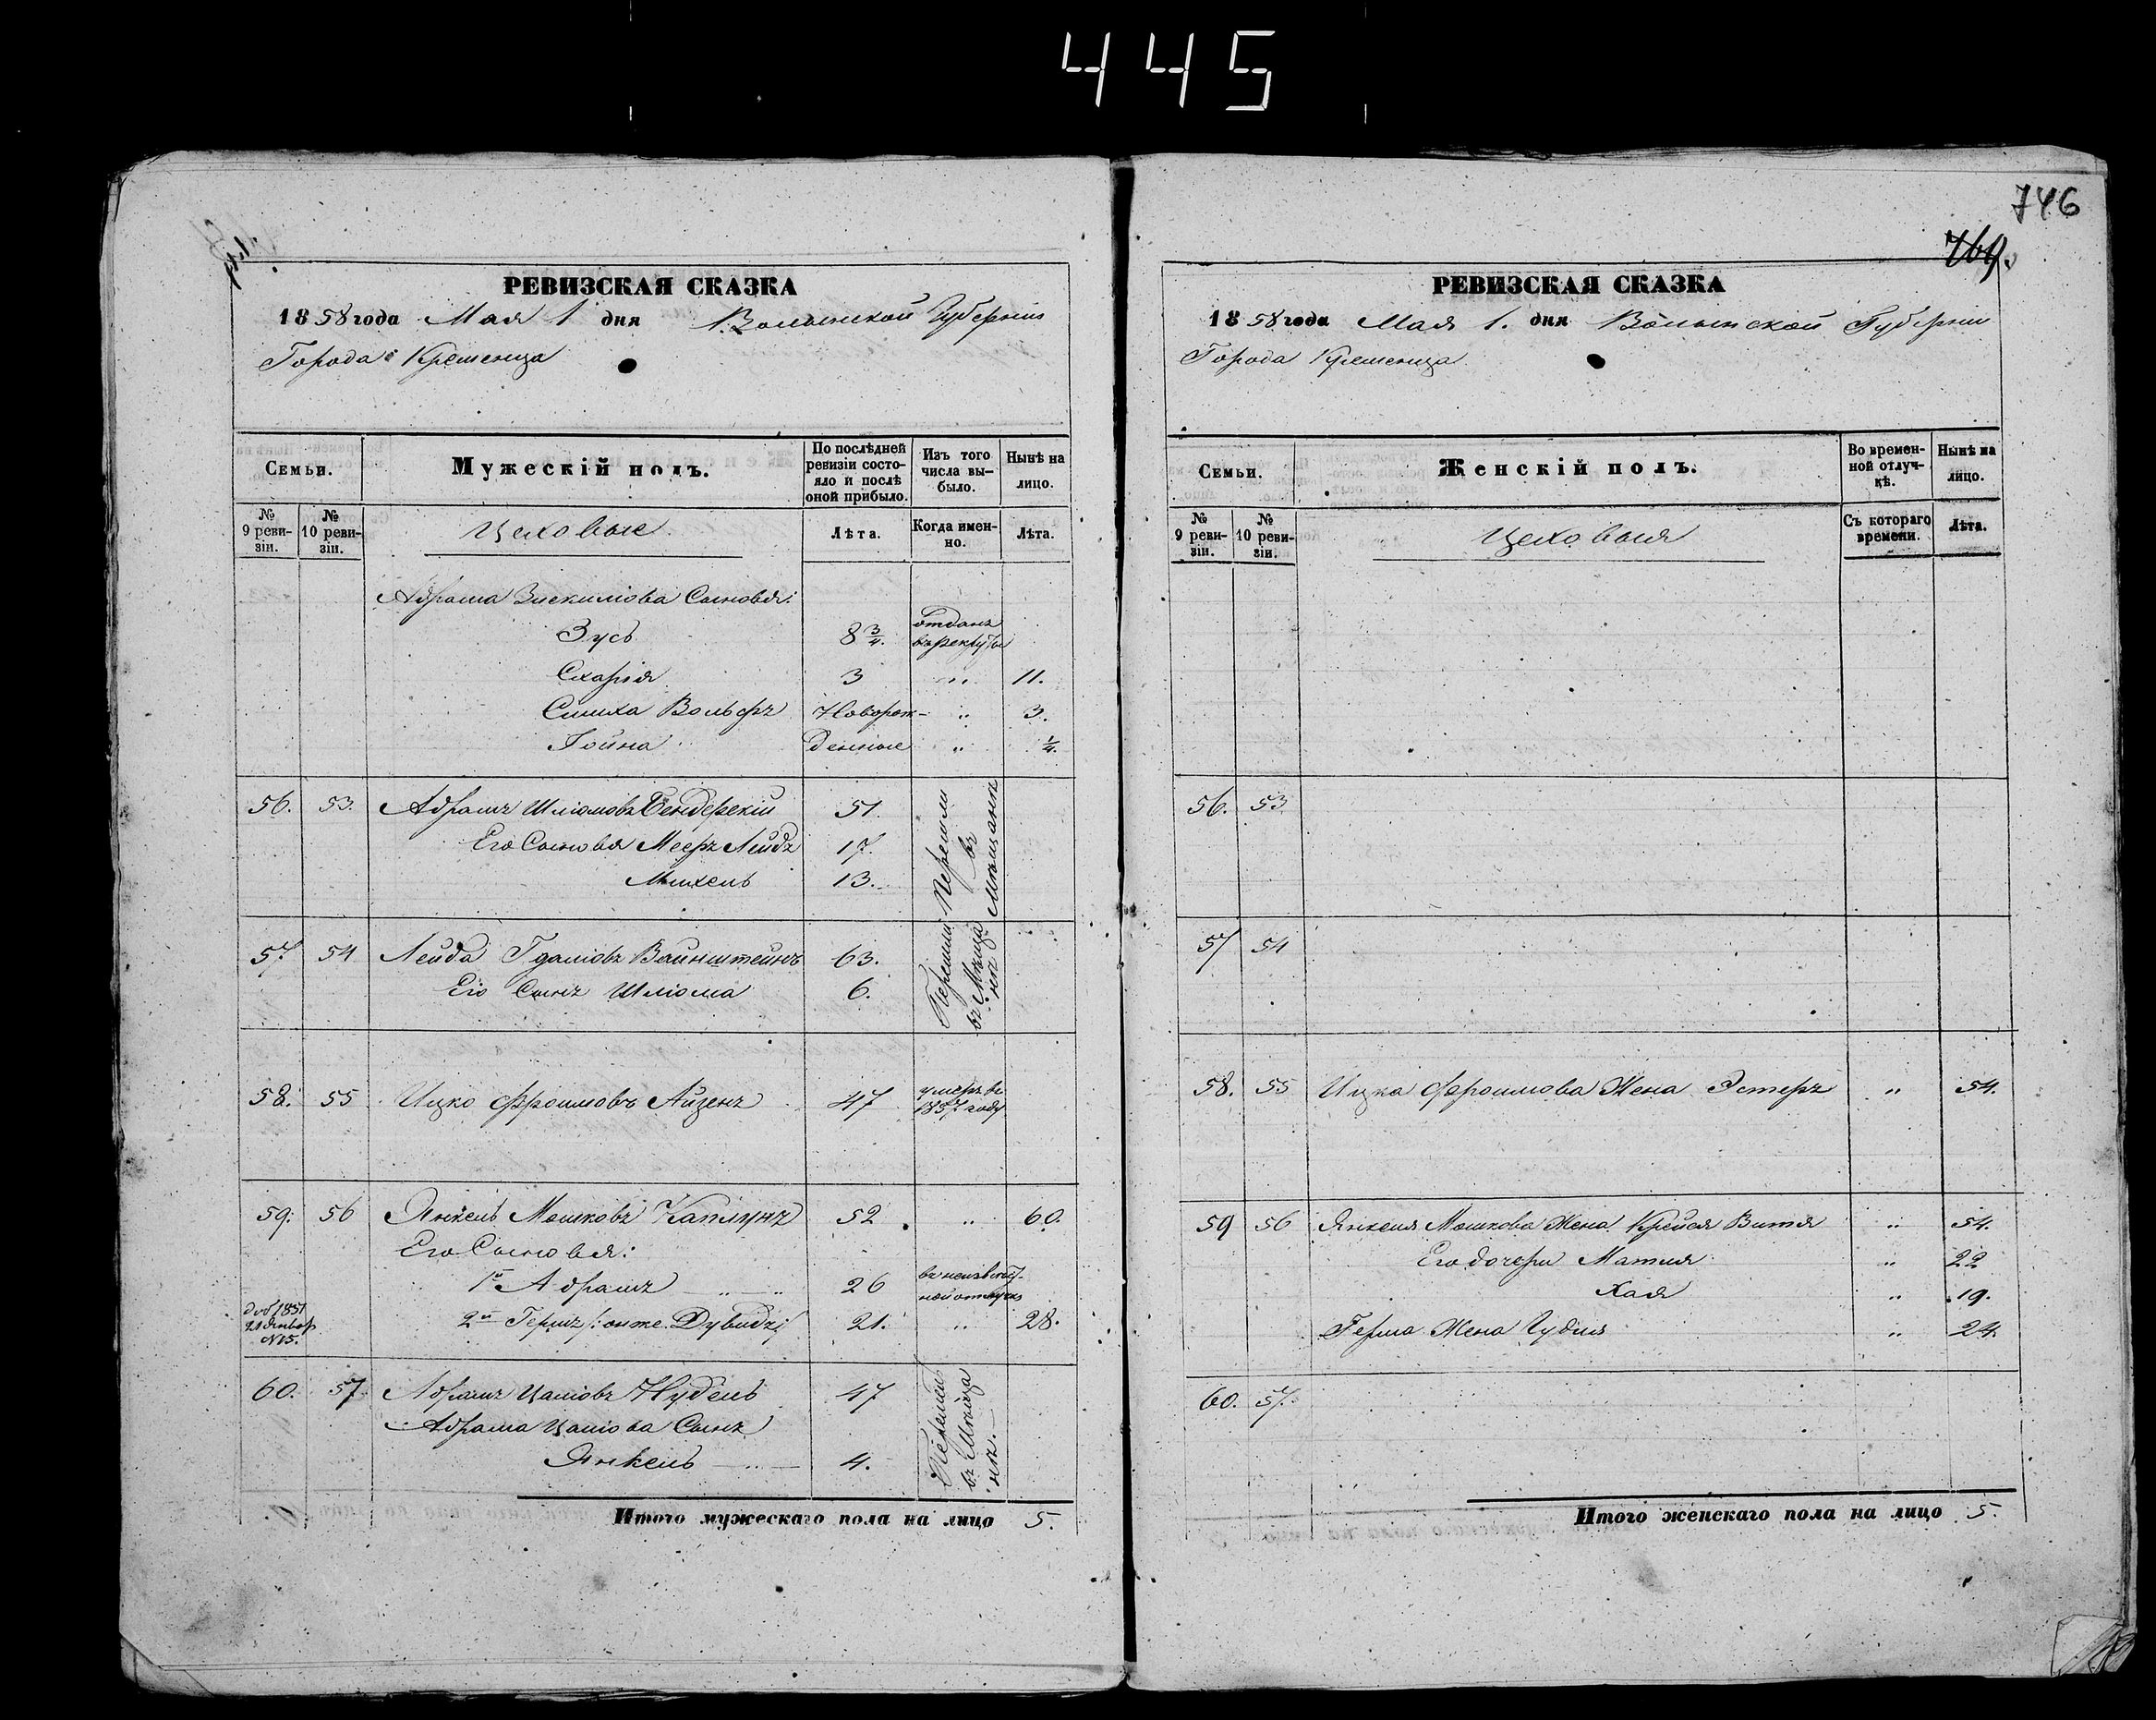 445
746
769.
РЕВИЗСКАЯ СКАЗКА
1858 года Мая 1 дня Волынской Губернии
Города Кременца
Семьи.
Мужескій полъ.
По послѣдней ревизіи состояло и послѣ оной прибыло.
Изъ того числа выбыло.
Нынѣ на лицо.
№ 9 ревизіи.
№ 10 ревизіи.
Цеховые
Лѣта.
Когда именно.
Лѣта.
Абрама Сыновья:
Зусь 8 3/4. отданъ въ рекруты
Схарія 3 " 11.
Симха Вольфъ Новорож- " 3.
Іойна денные " 1/4.
56. 53. Абрамъ Шліомовъ Бендерскій 51. Перешли въ Мѣщане
Его Сыновья Мееръ Лейбъ 17.
Михель 13.
57. 54 Лейба Гдаліовъ Вайнштейнъ 63. Перешли въ Мѣщане
Его Сынъ Шліома 6.
58. 55 Ицко Фроимовъ Айзенъ 47 умеръ въ 1857 году
59. 56 Янкель Мошковъ Каплунъ 52 " 60.
Его Сыновья:
1й Абрамъ 26 въ неизвѣстной отлучкѣ
доб 1851 21 Январ №15. 2й Гершъ /: онже Дувидъ/ 21. " 28.
60. 57 Абрамъ Цаліовъ Нудель 47 въ Мѣщане
Абрама Цаліова Сынъ
Янкель 4.
Итого мужескаго пола на лицо 5.
РЕВИЗСКАЯ СКАЗКА
1858 года Мая 1. дня Волынской Губерніи
Города Кременца
Семьи.
Женскій полъ.
Во временной отлучкѣ.
Нынѣ на лицо.
№ 9 ревизіи.
№ 10 ревизіи.
Цеховыя
Съ котораго времени.
Лѣта.
56. 53.
57 54
58. 55 Ицка Фроимова Жена Эстеръ " 54.
59 56 Янкеля Мошкова Жена Крейся Витя " 54.
Его дочери Матля " 22
Хая " 19.
Герша Жена Чудля " 24.
60. 57.
Итого женскаго пола на лицо 5.